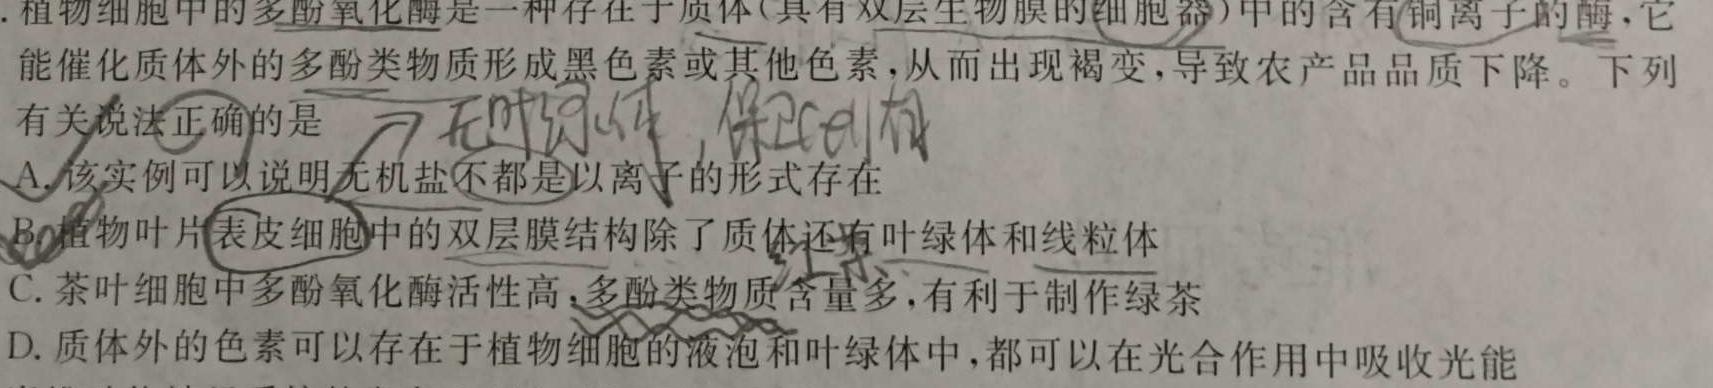 .植物细胞中的多酚氧化酶是一种存在于质体(具有双层生物膜的细胞器)中的含有铜离子的酶,它
能催化质体外的多酚类物质形成黑色素或其他色素,从而出现褐变,导致农产品品质下降。下列
有关说法正确的是
无叶绿体,保卫cell有
A.该实例可以说明无机盐不都是以离子的形式存在
B.植物叶片表皮细胞中的双层膜结构除了质体还有叶绿体和线粒体
红茶
C.茶叶细胞中多酚氧化酶活性高,多酚类物质含量多,有利于制作绿茶
D.质体外的色素可以存在于植物细胞的液泡和叶绿体中,都可以在光合作用中吸收光能